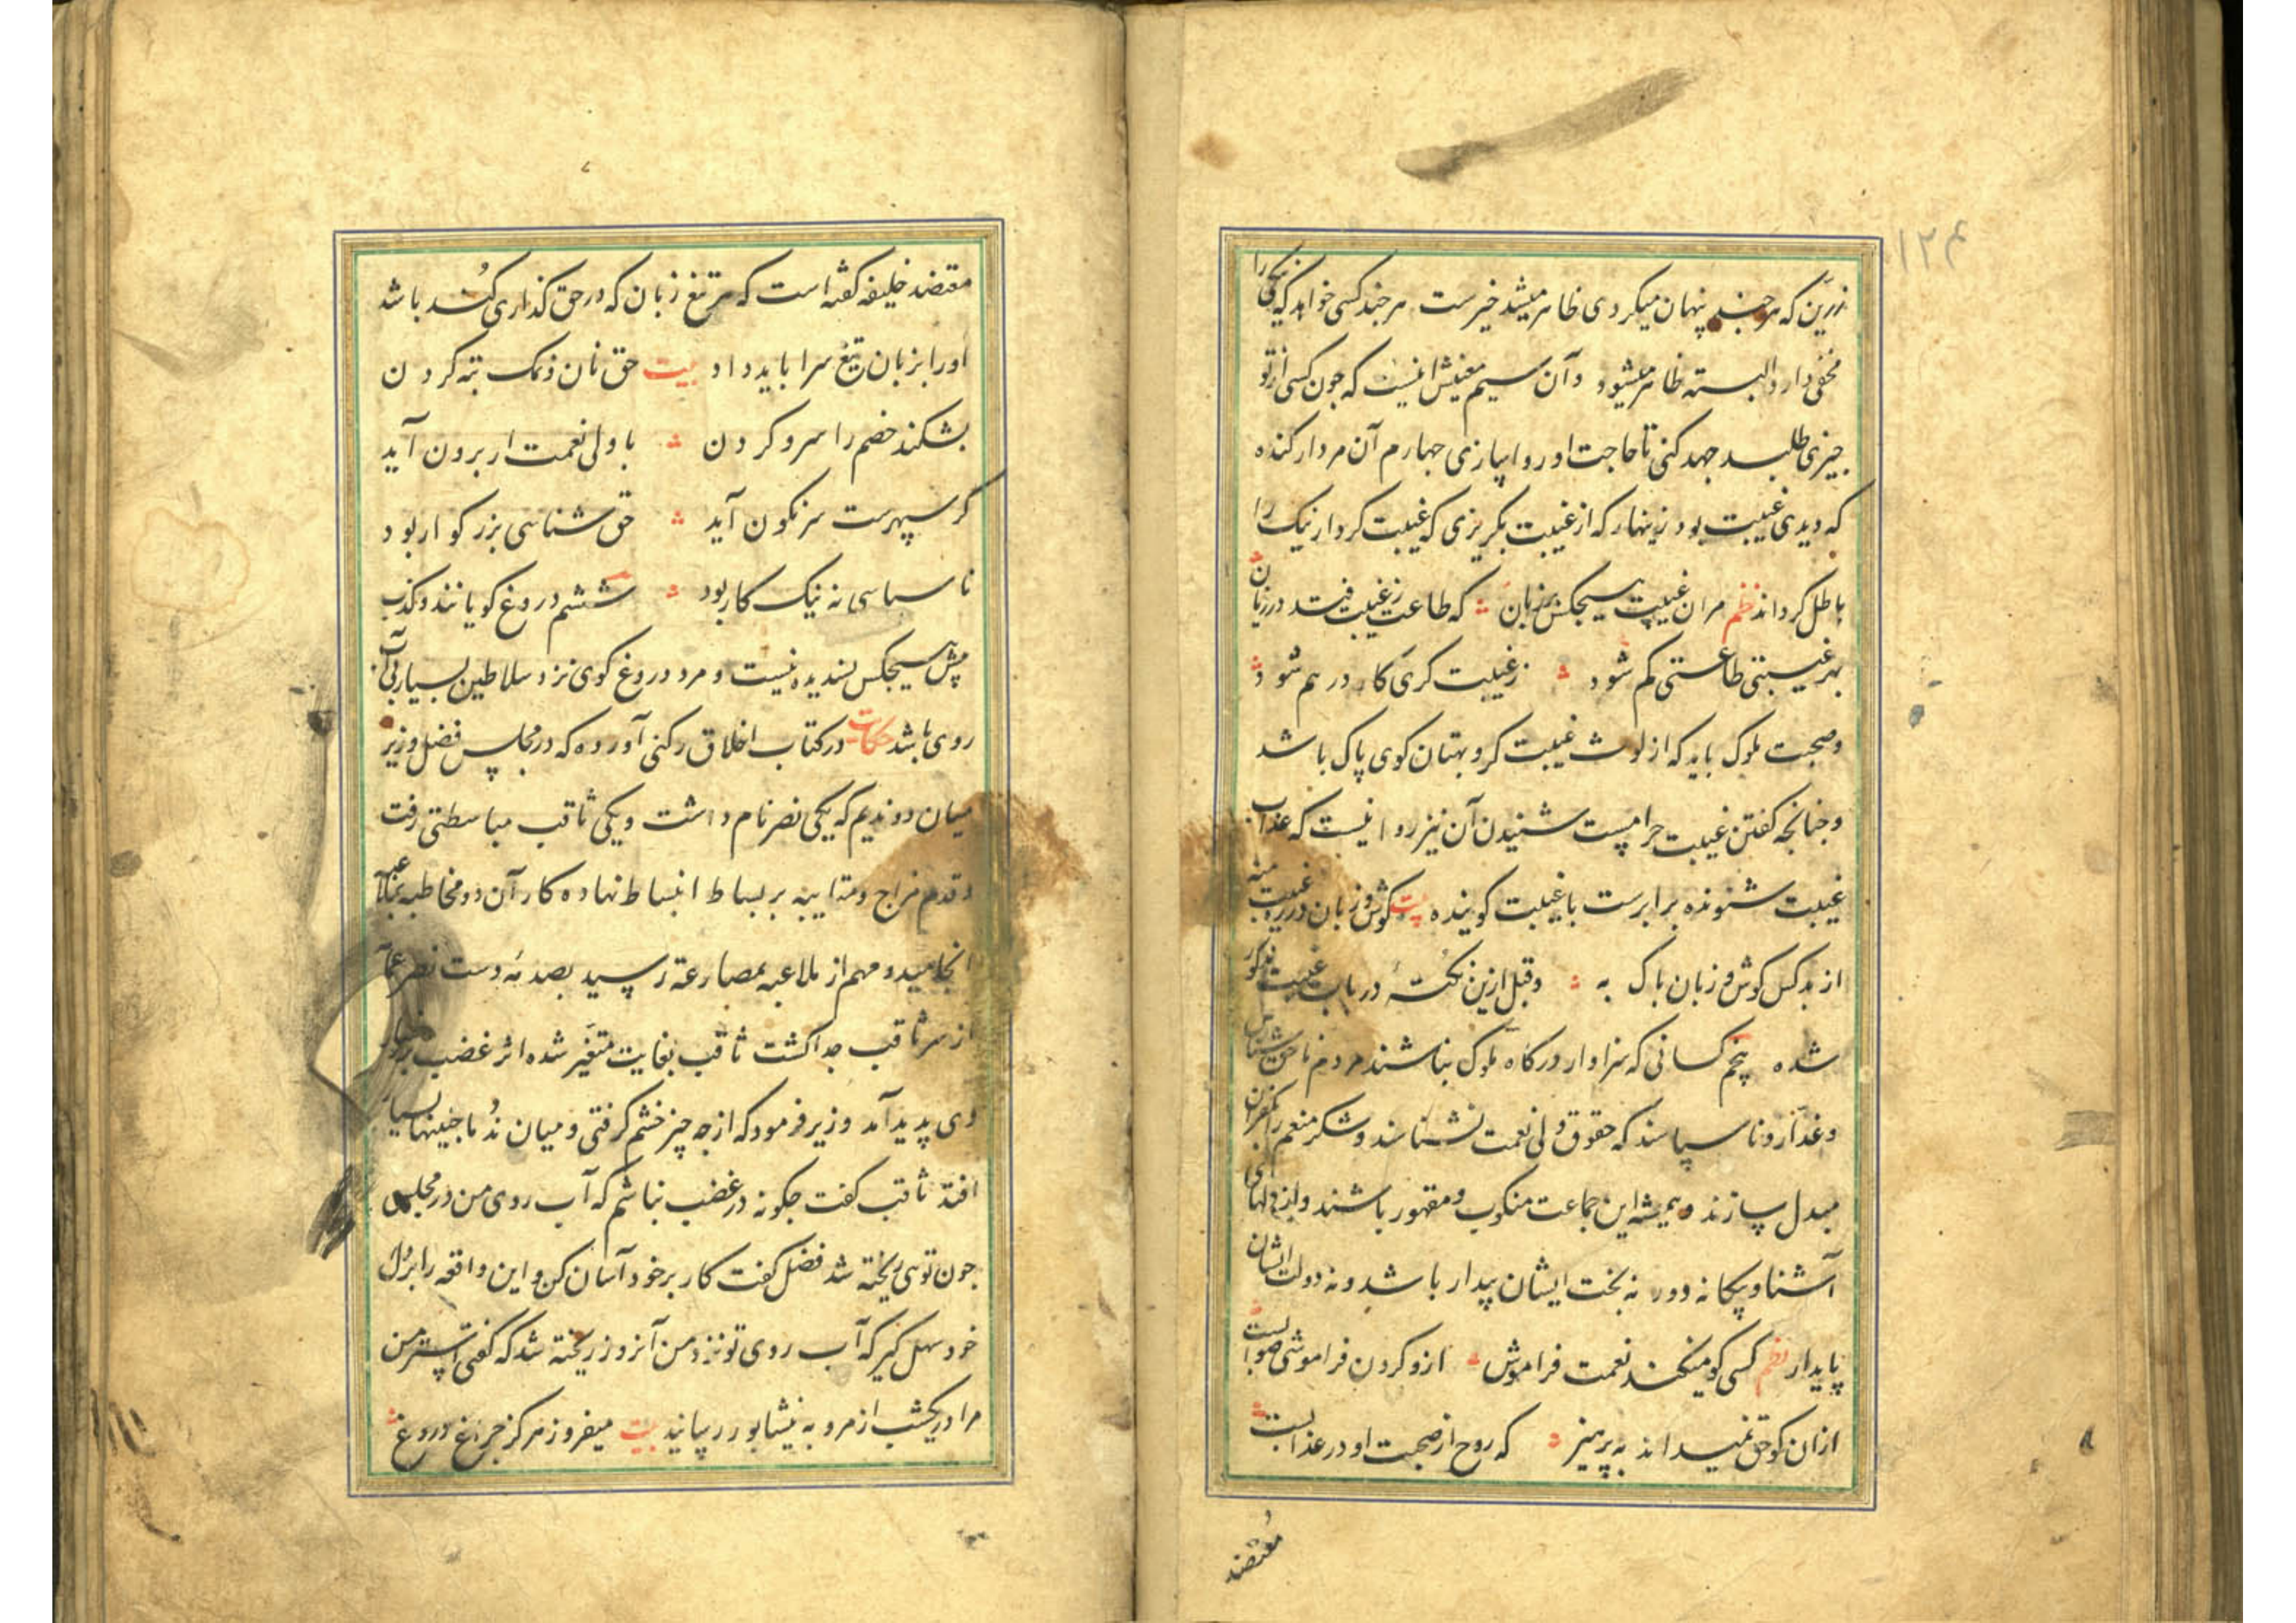 ۱۲۴
زرین که هر چند پنهان میکردی ظاهر میشد خیرست هر چند کسی خواهد که نیکی را
مخفی دارد البته ظاهر میشود و آن سیم معنیش اینست که چون کسی از تو
چیزی طلبد جهد کنی تا حاجت او روا سازی چهارم آن مردار کنده
که دیدی غیبت بود زینهار که از غیبت بگریزی که غیبت کردار نیک را
باطل گرداند نظم مران غیبت هیچکس بر زبان که طاعت ز غیبت فتد در زیان
بهر غیبتی طاعتی کم شود ز غیبت گری کار درهم شود
وصحبت ملوک باید که از لوث غیبت گر و بهتان گوی پاک باشد
و چنانچه گفتن غیبت حرامست شنیدن آن نیز روا نیست که عذاب
غیبت شنونده برابرست با غیبت گوینده بیت گوش و زبان در ره غیبت منه
از بد کس گوش و زبان پاک به وقبل ازین نکتهٔ در باب غیبت مذکور
شده پنجم کسانی که سزاوار درگاه ملوک نباشند مردم ناحق شناس
وغدار و ناسپاسند که حقوق ولی نعمت نشناسند و شکر منعم را بکفران
مبدل سازند و همیشه این جماعت منکوب و مقهور باشند و از دلهای
آشنا و بیگانه دور نه بخت ایشان بیدار باشد و نه دولت ایشان
پایدار نظم کسی کو میکند نعمت فراموش ازو کردن فراموشی صوابست
ازان کو حق نمیداند به پرهیز که روح از صحبت او در عذابست
معتضد
معتضد خلیفه گفته است که هر تیغ زبان که در حق گذاری کُند باشد
اورا بزبان تیغ سزا باید داد بیت حق نان و نمک تبه کردن
بشکند خصم را سر و گردن با ولی نعمت ار برون آید
گر سپهرست سرنگون آید حق شناسی بزرگوار بود
ناسپاسی نه نیک کار بود ششم دروغ گویانند و کذب
پیش هیچکس پسندیده نیست و مرد دروغ گوی نزد سلاطین بسیار بی آب
روی باشد حکایت در کتاب اخلاق رکنی آورده که در مجلس فضل وزیر
میان دو ندیم که یکی نصر نام داشت و یکی ثاقب مباسطتی رفت
و قدم مزاح و مداعبه بر بساط انبساط نهاده کار آن دو مخاطبه بملاعبه
انجامید و مهم از ملاعبه بمصارعه رسید بصدمهٔ دست نصر عمامه
از سر ثاقب جدا گشت ثاقب بغایت متغیر شده اثر غضب بر
وی پدید آمد وزیر فرمود که از چه چیز خشم گرفتی و میان نُدما چنینها بسیار
افتد ثاقب گفت چگونه در غضب نباشم که آب روی من در مجلس
چون توئی ریخته شد فضل گفت کار بر خود آسان کن و این واقعه را بر دل
خود سهل گیر که آب روی تو نزد من آنروز ریخته شد که گفتی استر من
مرا در یکشب از مرو به نیشابور رسانید بیت میفروز هرگز چراغ دروغ